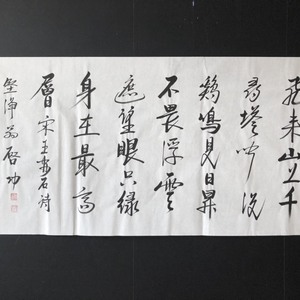 飛来山上千
尋塔聞說
鷄鳴見日昇
不畏浮雲
遮望眼只緣
身在最高
層 宋王安石詩
堅淨翁啓功